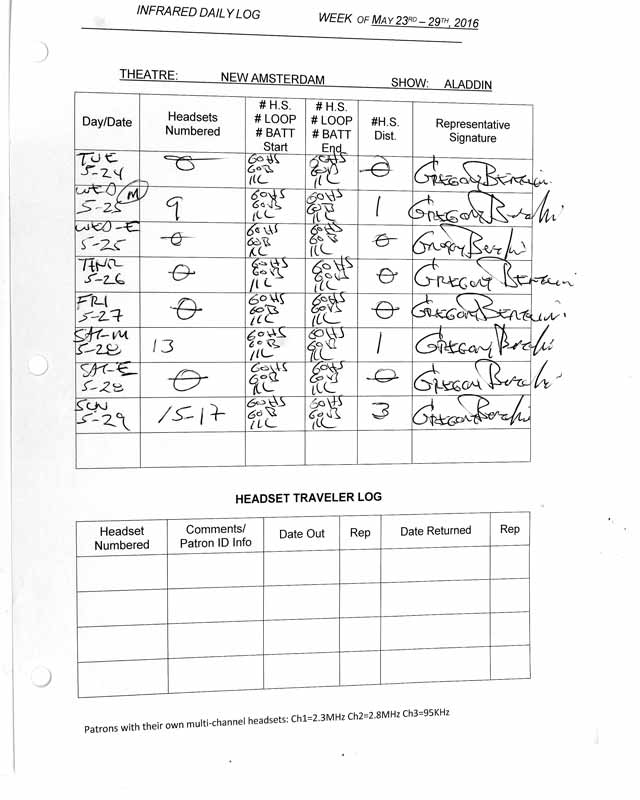 INFRARED DAILY LOG WEEK OF MAY 23RD – 29TH, 2016
THEATRE: NEW AMSTERDAM SHOW: ALADDIN
Day/Date Headsets Numbered # H.S. # LOOP # BATT Start # H.S. # LOOP # BATT End #H.S. Dist. Representative Signature
TUE 5-24 0 60HS 60B 1LC 60HS 60B 1LC 0 GREGORY
WED M 5-25 9 60HS 60B 1LC 60HS 60B 1LC 1 GREGORY
WED-E 5-25 0 60HS 60B 1LC 60HS 60B 1LC 0 GREGORY
THUR 5-26 0 60HS 60B 1LC 60HS 60B 1LC 0 GREGORY
FRI 5-27 0 60HS 60B 1LC 60HS 60B 1LC 0 GREGORY
SAT-M 5-28 13 60HS 60B 1LC 60HS 60B 1LC 1 GREGORY
SAT-E 5-28 0 60HS 60B 1LC 60HS 60B 1LC 0 GREGORY
SUN 5-29 15-17 60HS 60B 1LC 60HS 60B 1LC 3 GREGORY
HEADSET TRAVELER LOG
Headset Numbered Comments/ Patron ID Info Date Out Rep Date Returned Rep
Patrons with their own multi-channel headsets: Ch1=2.3MHz Ch2=2.8MHz Ch3=95KHz